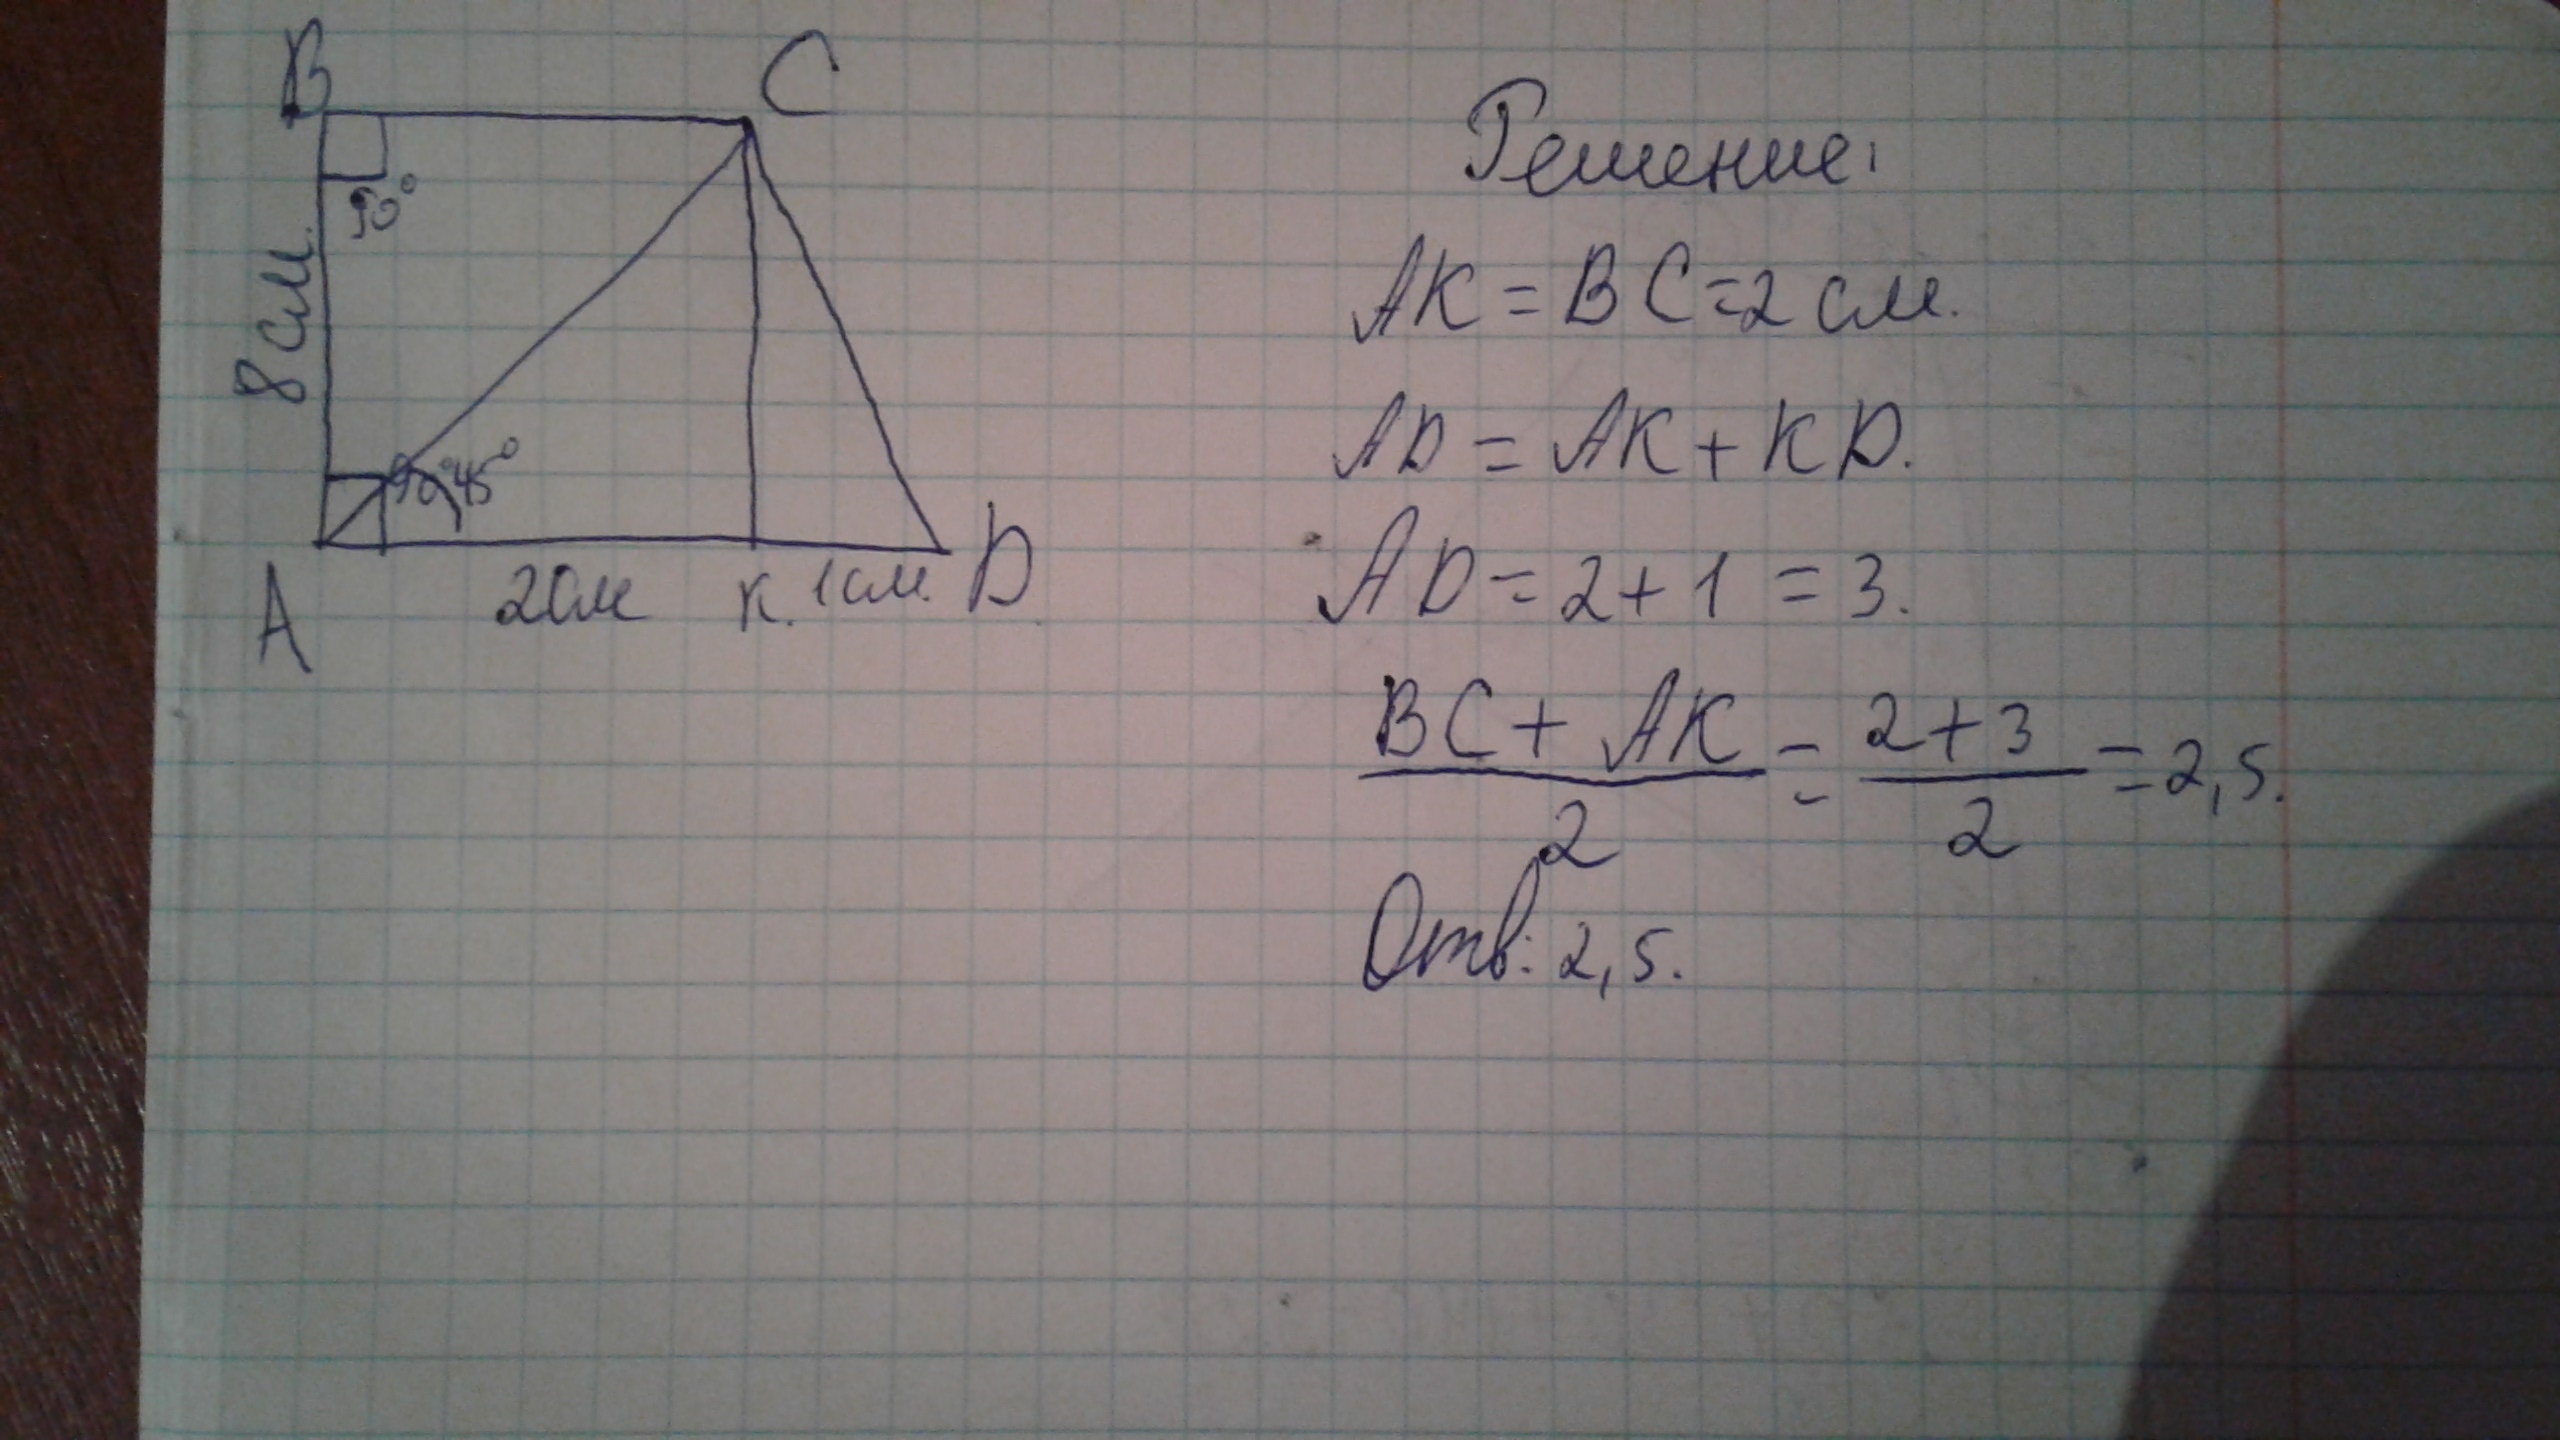 B
C
90°
8 см.
90°
45°
A
2см
К.
1см.
D
Решение:
AK = BC = 2 см.
AD = AK + KD.
AD = 2 + 1 = 3.
BC + AK / 2 = 2 + 3 / 2 = 2,5.
Отв: 2,5.